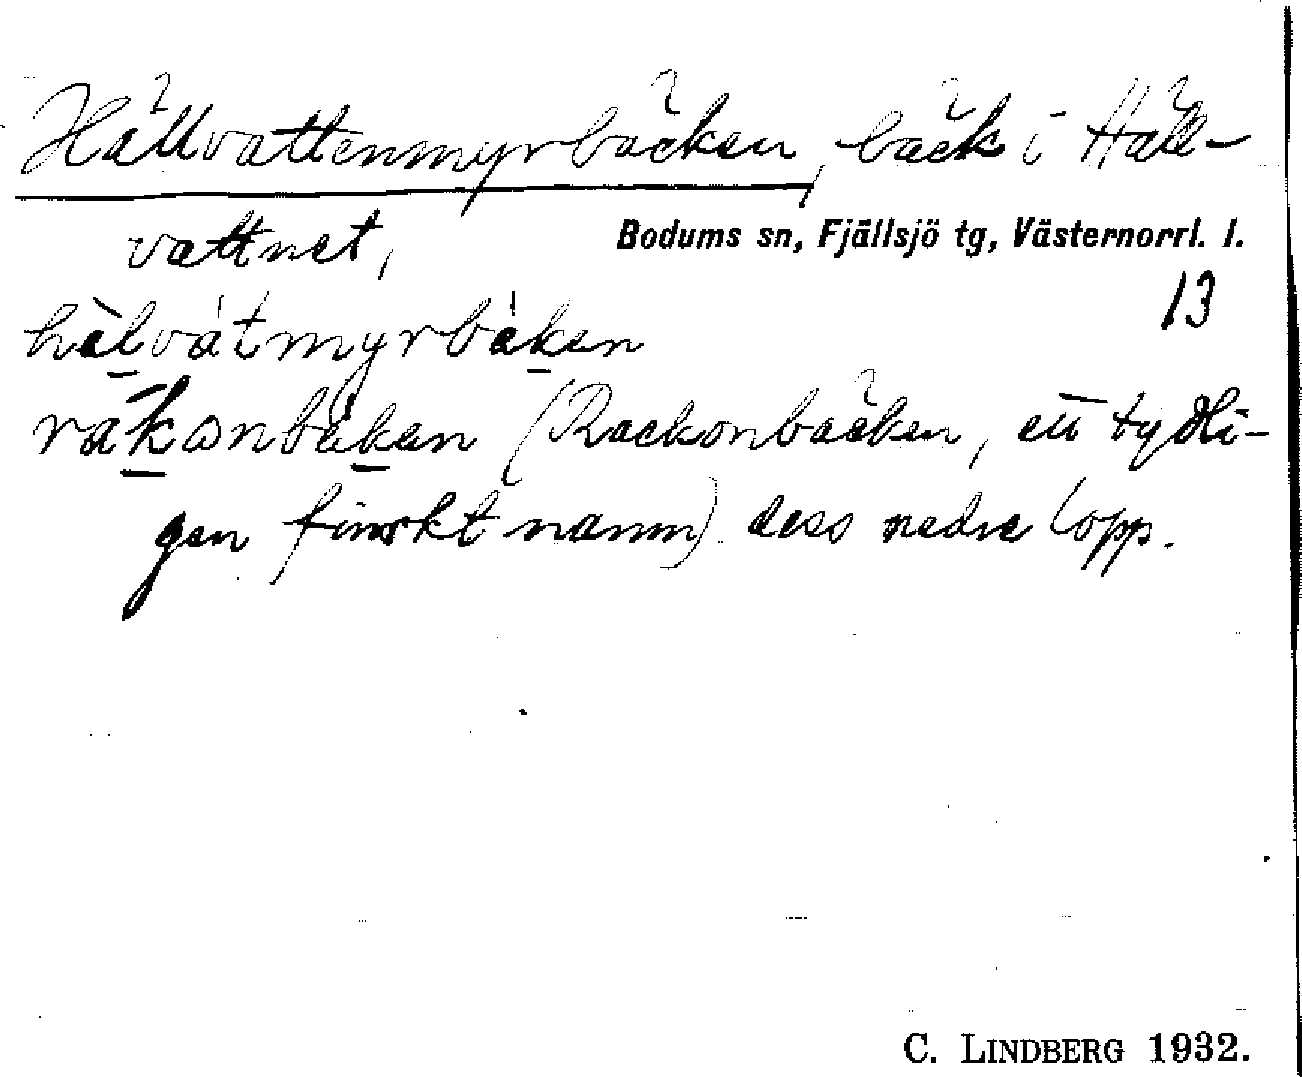 Hällvattenmyrbäcken, bäck i Häll-
vattnet,
Bodums sn, Fjällsjö tg, Västernorrl. l.
13
hälvàtmyrbäken
råkonbäken (Rackonbäcken, ett tydli-
gen finskt namn) dess nedre lopp.
C. LINDBERG 1932.